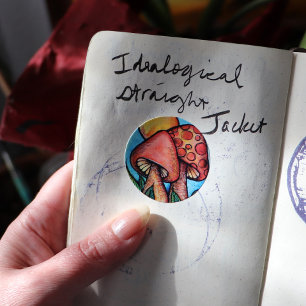 Idealogical
straight
Jacket